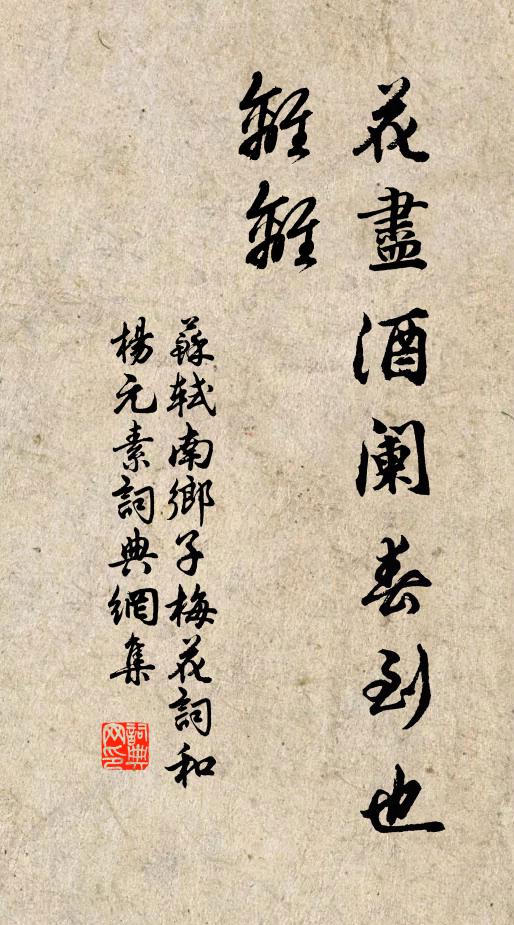 花盡酒闌春到也
離離
蘇軾南鄉子梅花詞和
楊元素詞典網集
詞典
网印